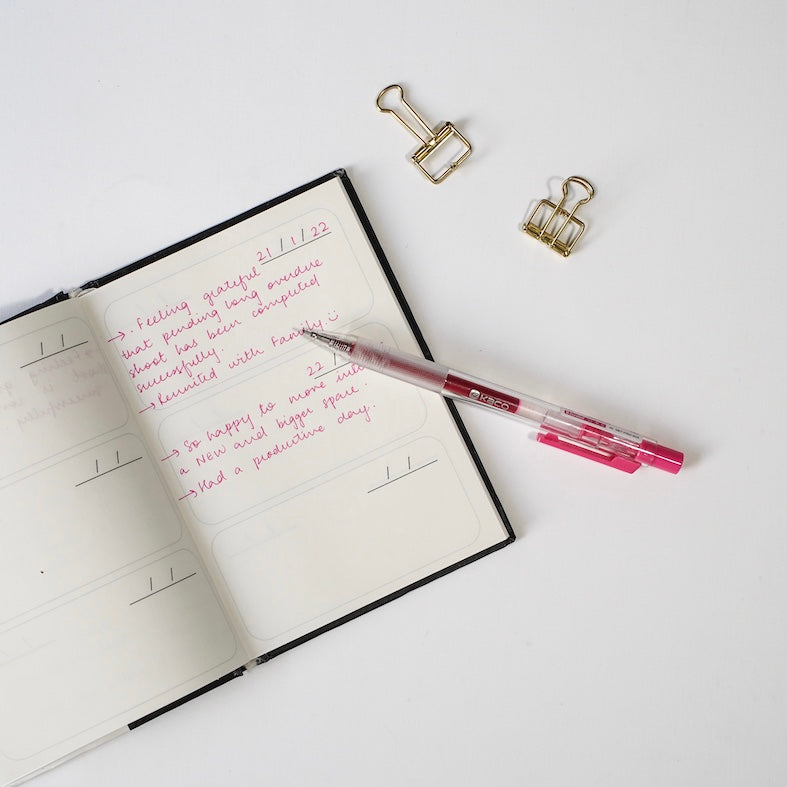 21 / 1 / 22
→ . Feeling grateful
that pending long overdue
shoot has been completed
successfully.
→ Reunited with Family ☺
22 / 1
→ So happy to move into
a New and bigger space.
→ Had a productive day.
/ /
/ /
/ /
/ /
KACO